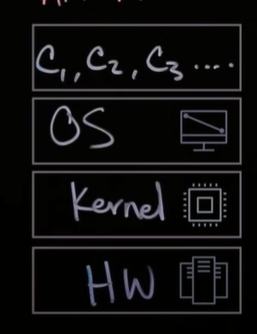 C₁, C₂, C₃ ....
OS
Kernel
HW